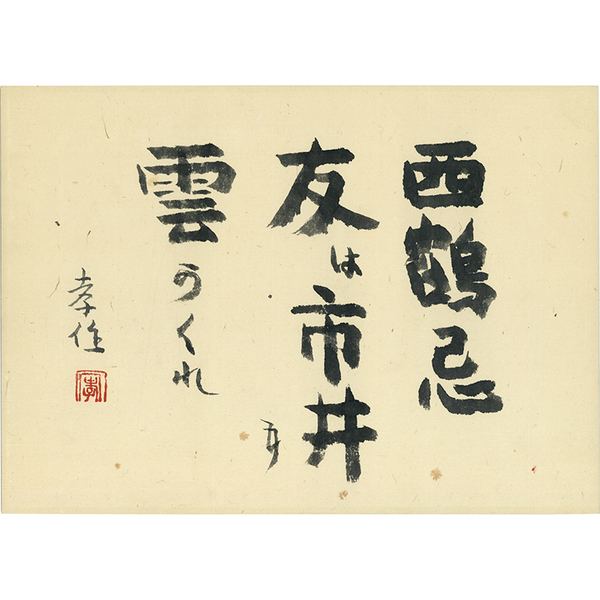 西鶴忌
友は市井
に
雲かくれ
孝